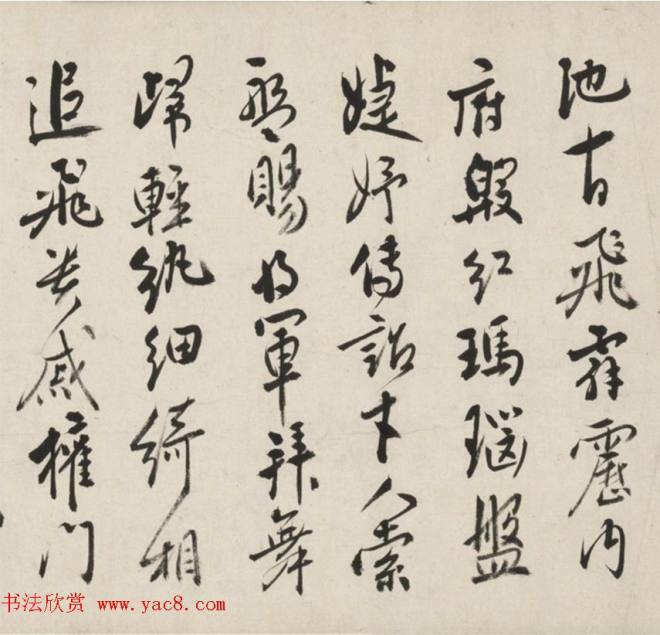 池十日飛霹靂內
府殷紅瑪瑙盤
婕妤傳詔才人索
盤賜將軍拜舞
歸輕紈細綺相
追飛貴戚權門
书法欣赏 www.yac8.com